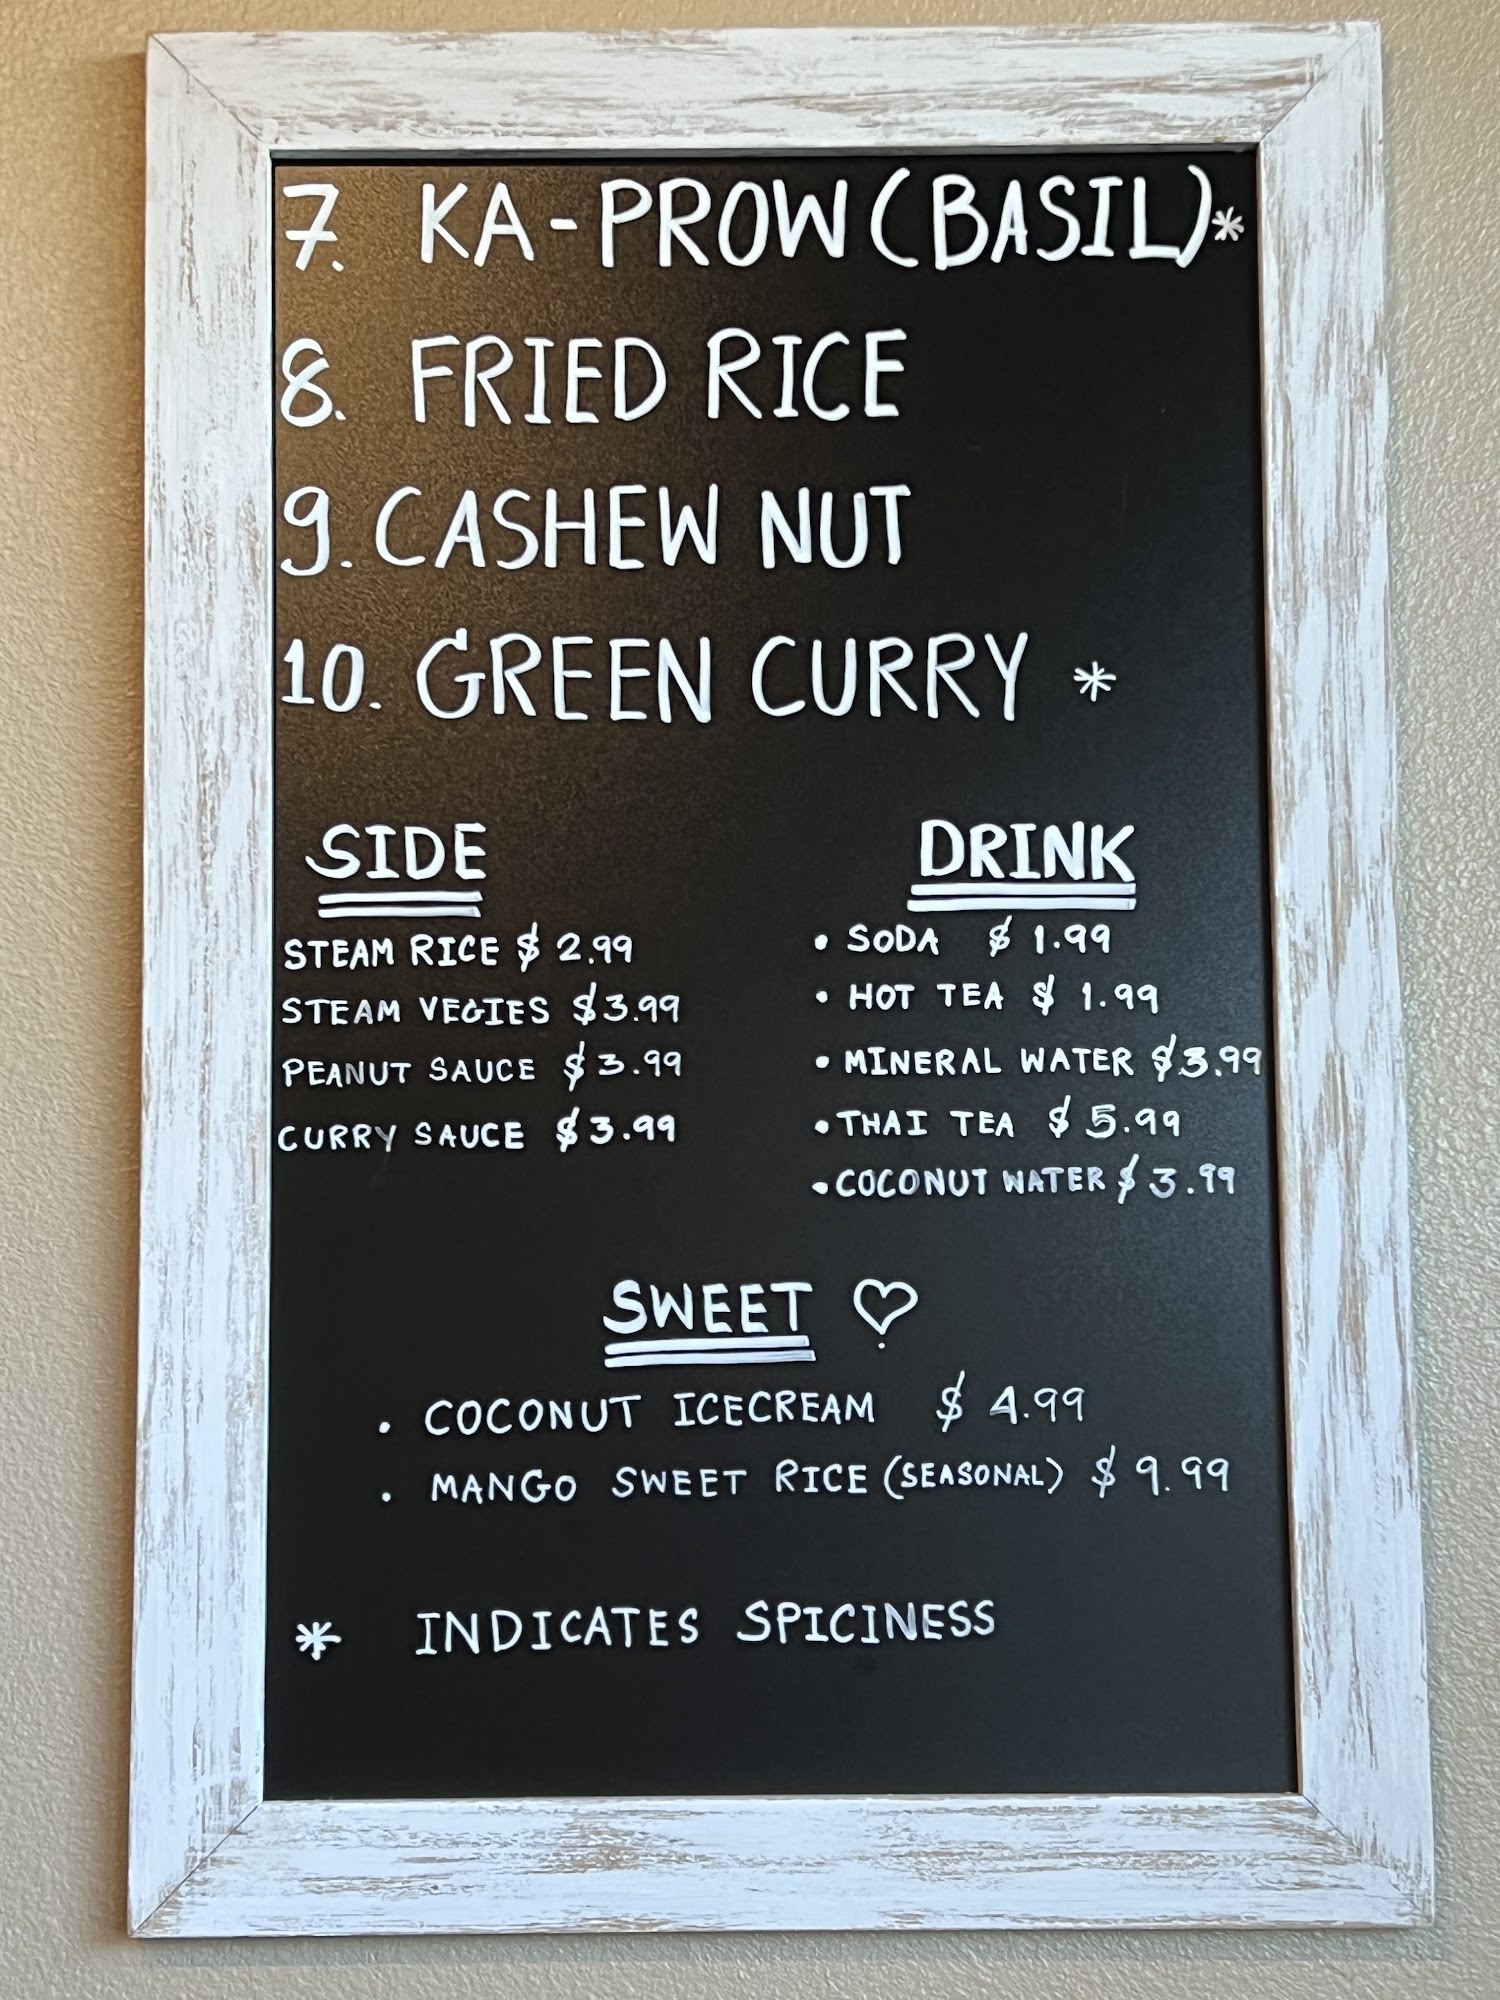 7. KA-PROW(BASIL)*
8. FRIED RICE
9. CASHEW NUT
10. GREEN CURRY *
SIDE
STEAM RICE $ 2.99
STEAM VEGIES $3.99
PEANUT SAUCE $3.99
CURRY SAUCE $3.99
DRINK
• SODA $ 1.99
• HOT TEA $ 1.99
• MINERAL WATER $3.99
• THAI TEA $ 5.99
• COCONUT WATER $ 3.99
SWEET ♡
• COCONUT ICECREAM $ 4.99
• MANGO SWEET RICE (SEASONAL) $ 9.99
* INDICATES SPICINESS